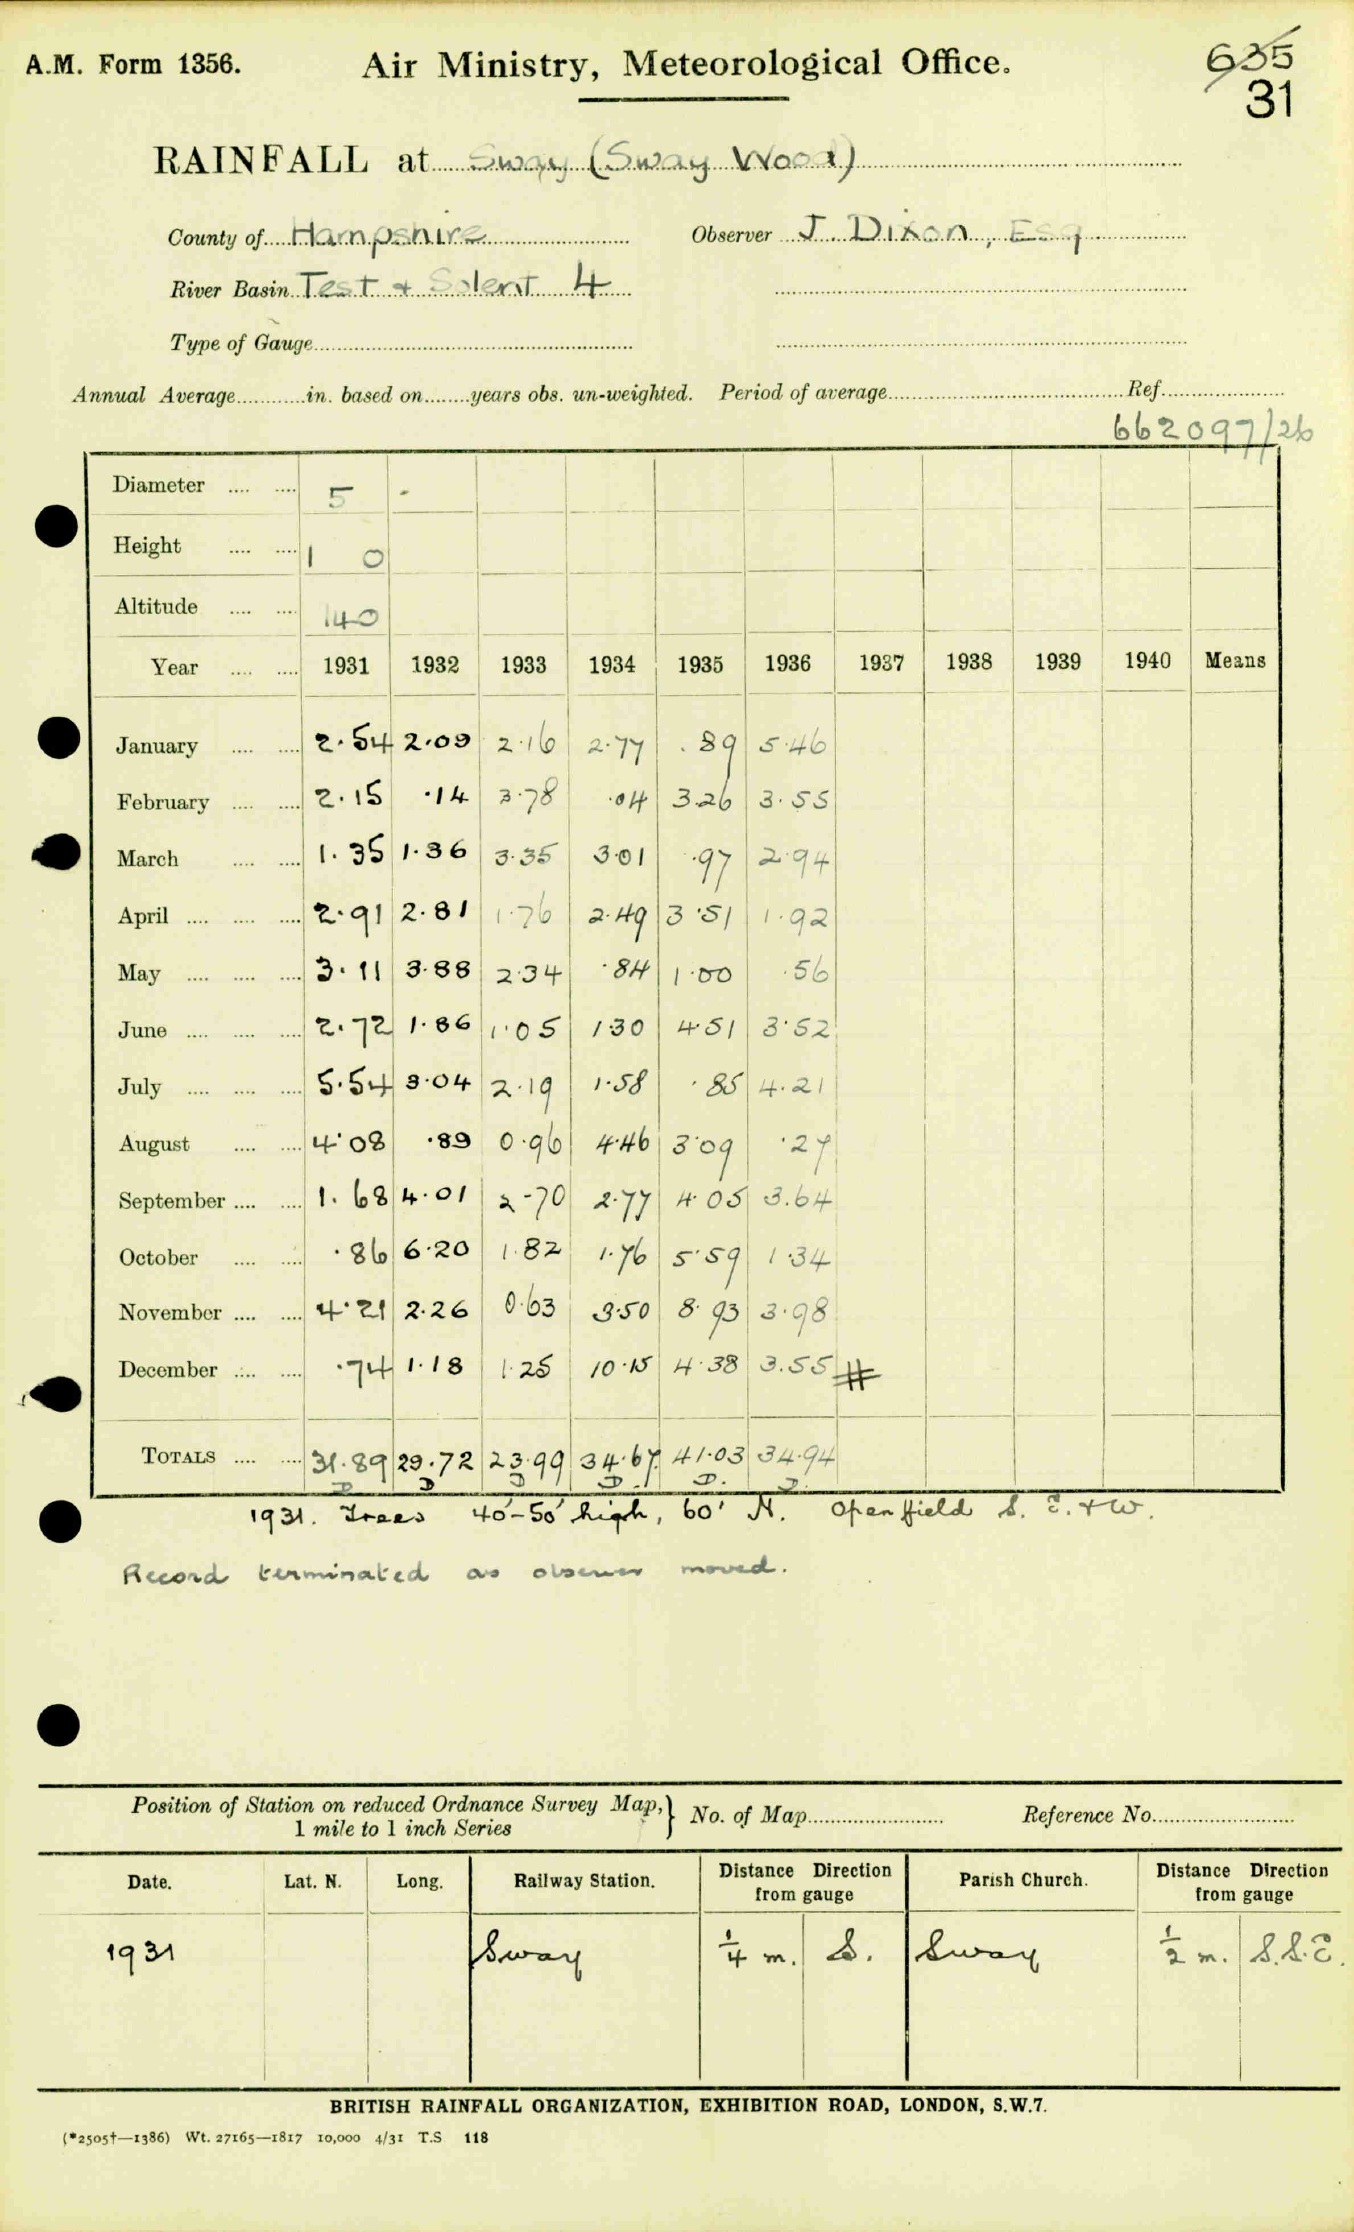 A.M. Form 1356. Air Ministry, Meteorological Office. 635
31
RAINFALL at Sway (Sway Wood)
County of Hampshire Observer J. Dixon, Esq
River Basin Test & Solent 4
Type of Gauge
Annual Average in. based on years obs. un-weighted. Period of average Ref.
662097/26
Diameter 5
Height 1 0
Altitude 140
Year 1931 1932 1933 1934 1935 1936 1937 1938 1939 1940 Means
January 2.54 2.09 2.16 2.77 .89 5.46
February 2.15 .14 3.78 .04 3.26 3.55
March 1.35 1.36 3.35 3.01 .97 2.94
April 2.91 2.81 1.76 2.49 3.51 1.92
May 3.11 3.88 2.34 .84 1.00 .56
June 2.72 1.86 1.05 1.30 4.51 3.52
July 5.54 3.04 2.19 1.58 .85 4.21
August 4.08 .89 0.96 4.46 3.09 .27
September 1.68 4.01 2.70 2.77 4.05 3.64
October .86 6.20 1.82 1.76 5.59 1.34
November 4.21 2.26 0.63 3.50 8.93 3.98
December .74 1.18 1.25 10.15 4.38 3.55 #
TOTALS 31.89 29.72 23.99 34.67 41.03 34.94
D D D D. D. D.
1931. Trees 40'-50' high, 60' N. Open field S. E. & W.
Record terminated as observer moved.
Position of Station on reduced Ordnance Survey Map, } No. of Map Reference No.
1 mile to 1 inch Series
Date. Lat. N. Long. Railway Station. Distance Direction from gauge Parish Church. Distance Direction from gauge
1931 Sway 1/4 m. S. Sway 1/2 m. S.S.E.
BRITISH RAINFALL ORGANIZATION, EXHIBITION ROAD, LONDON, S.W.7.
(*2505†—1386) Wt. 27165—1817 10,000 4/31 T.S 118